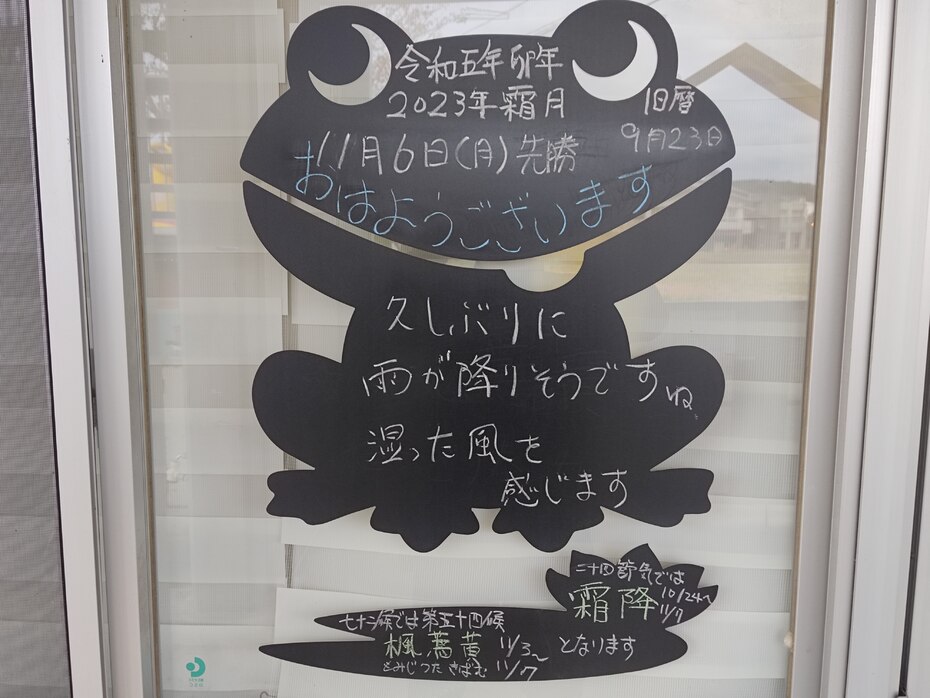 令和五年卯年
2023年霜月
旧暦
9月23日
11月6日(月)先勝
おはようございます
久しぶりに
雨が降りそうですね
湿った風を
感じます
二十四節気では
霜降 10/24〜11/7
七十二候では第五十四候
楓蔦黄 11/3〜11/7
もみじつたきばむ
となります